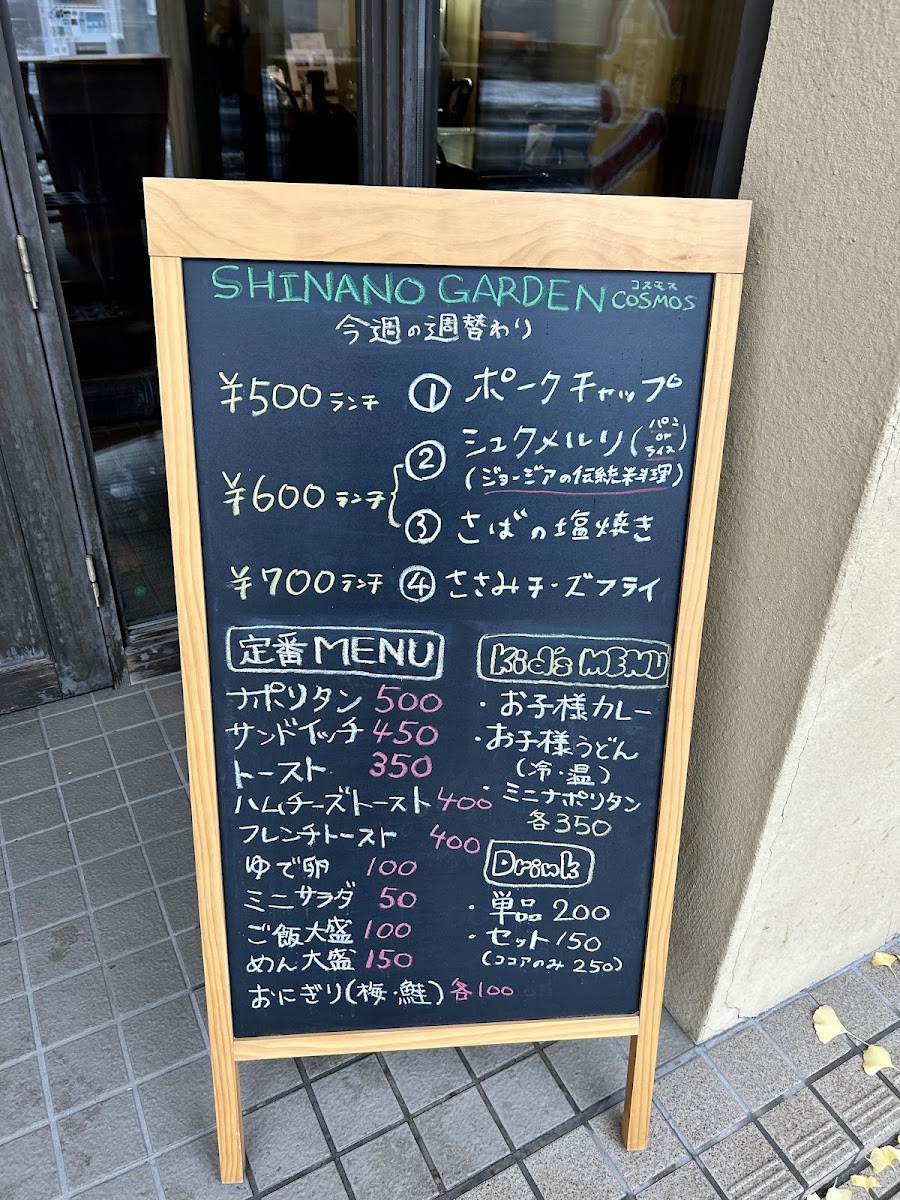 SHINANO GARDEN コスモス COSMOS
今週の週替わり
¥500 ランチ ① ポークチャップ
② シュクメルリ(パン or ライス)
(ジョージアの伝統料理)
¥600 ランチ
③ さばの塩焼き
¥700 ランチ ④ ささみチーズフライ
定番MENU
ナポリタン 500
サンドイッチ 450
トースト 350
ハムチーズトースト 400
フレンチトースト 400
ゆで卵 100
ミニサラダ 50
ご飯大盛 100
めん大盛 150
おにぎり(梅・鮭) 各100
Kid's MENU
・お子様カレー
・お子様うどん
(冷・温)
・ミニナポリタン
各350
Drink
・単品 200
・セット 150
(ココアのみ 250)